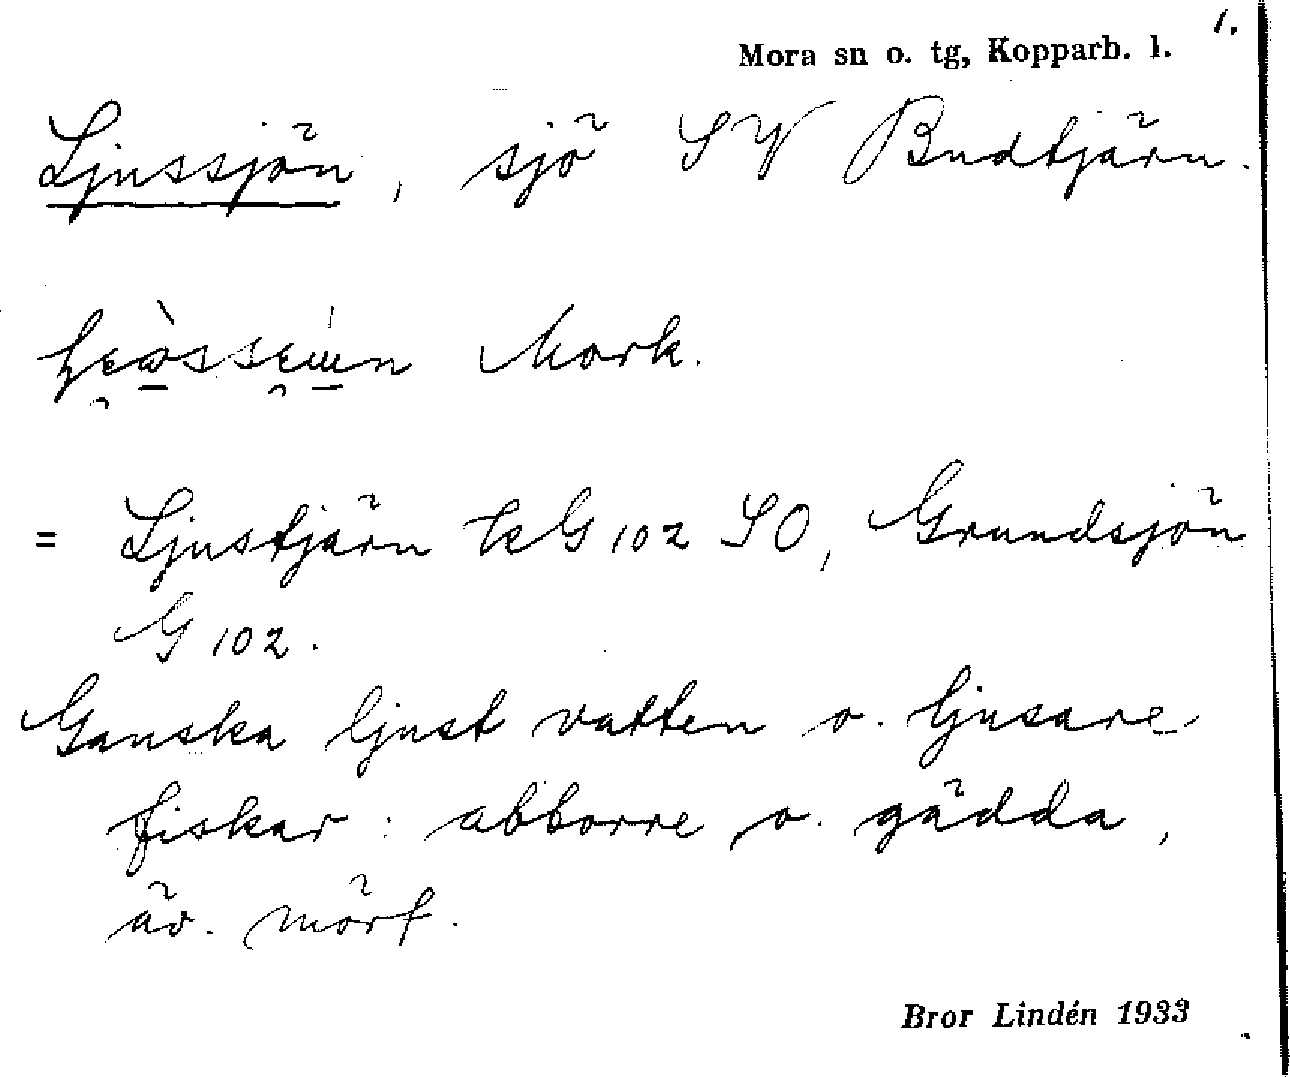 1.
Mora sn o. tg, Kopparb. l.
Ljussjön, sjö SV Budtjärn.
Mork.
= Ljustjärn kG 102 SO, Grundsjön
G 102.
Ganska ljust vatten o. ljusare
fiskar: abborre o. gädda,
äv. mört.
Bror Lindén 1933